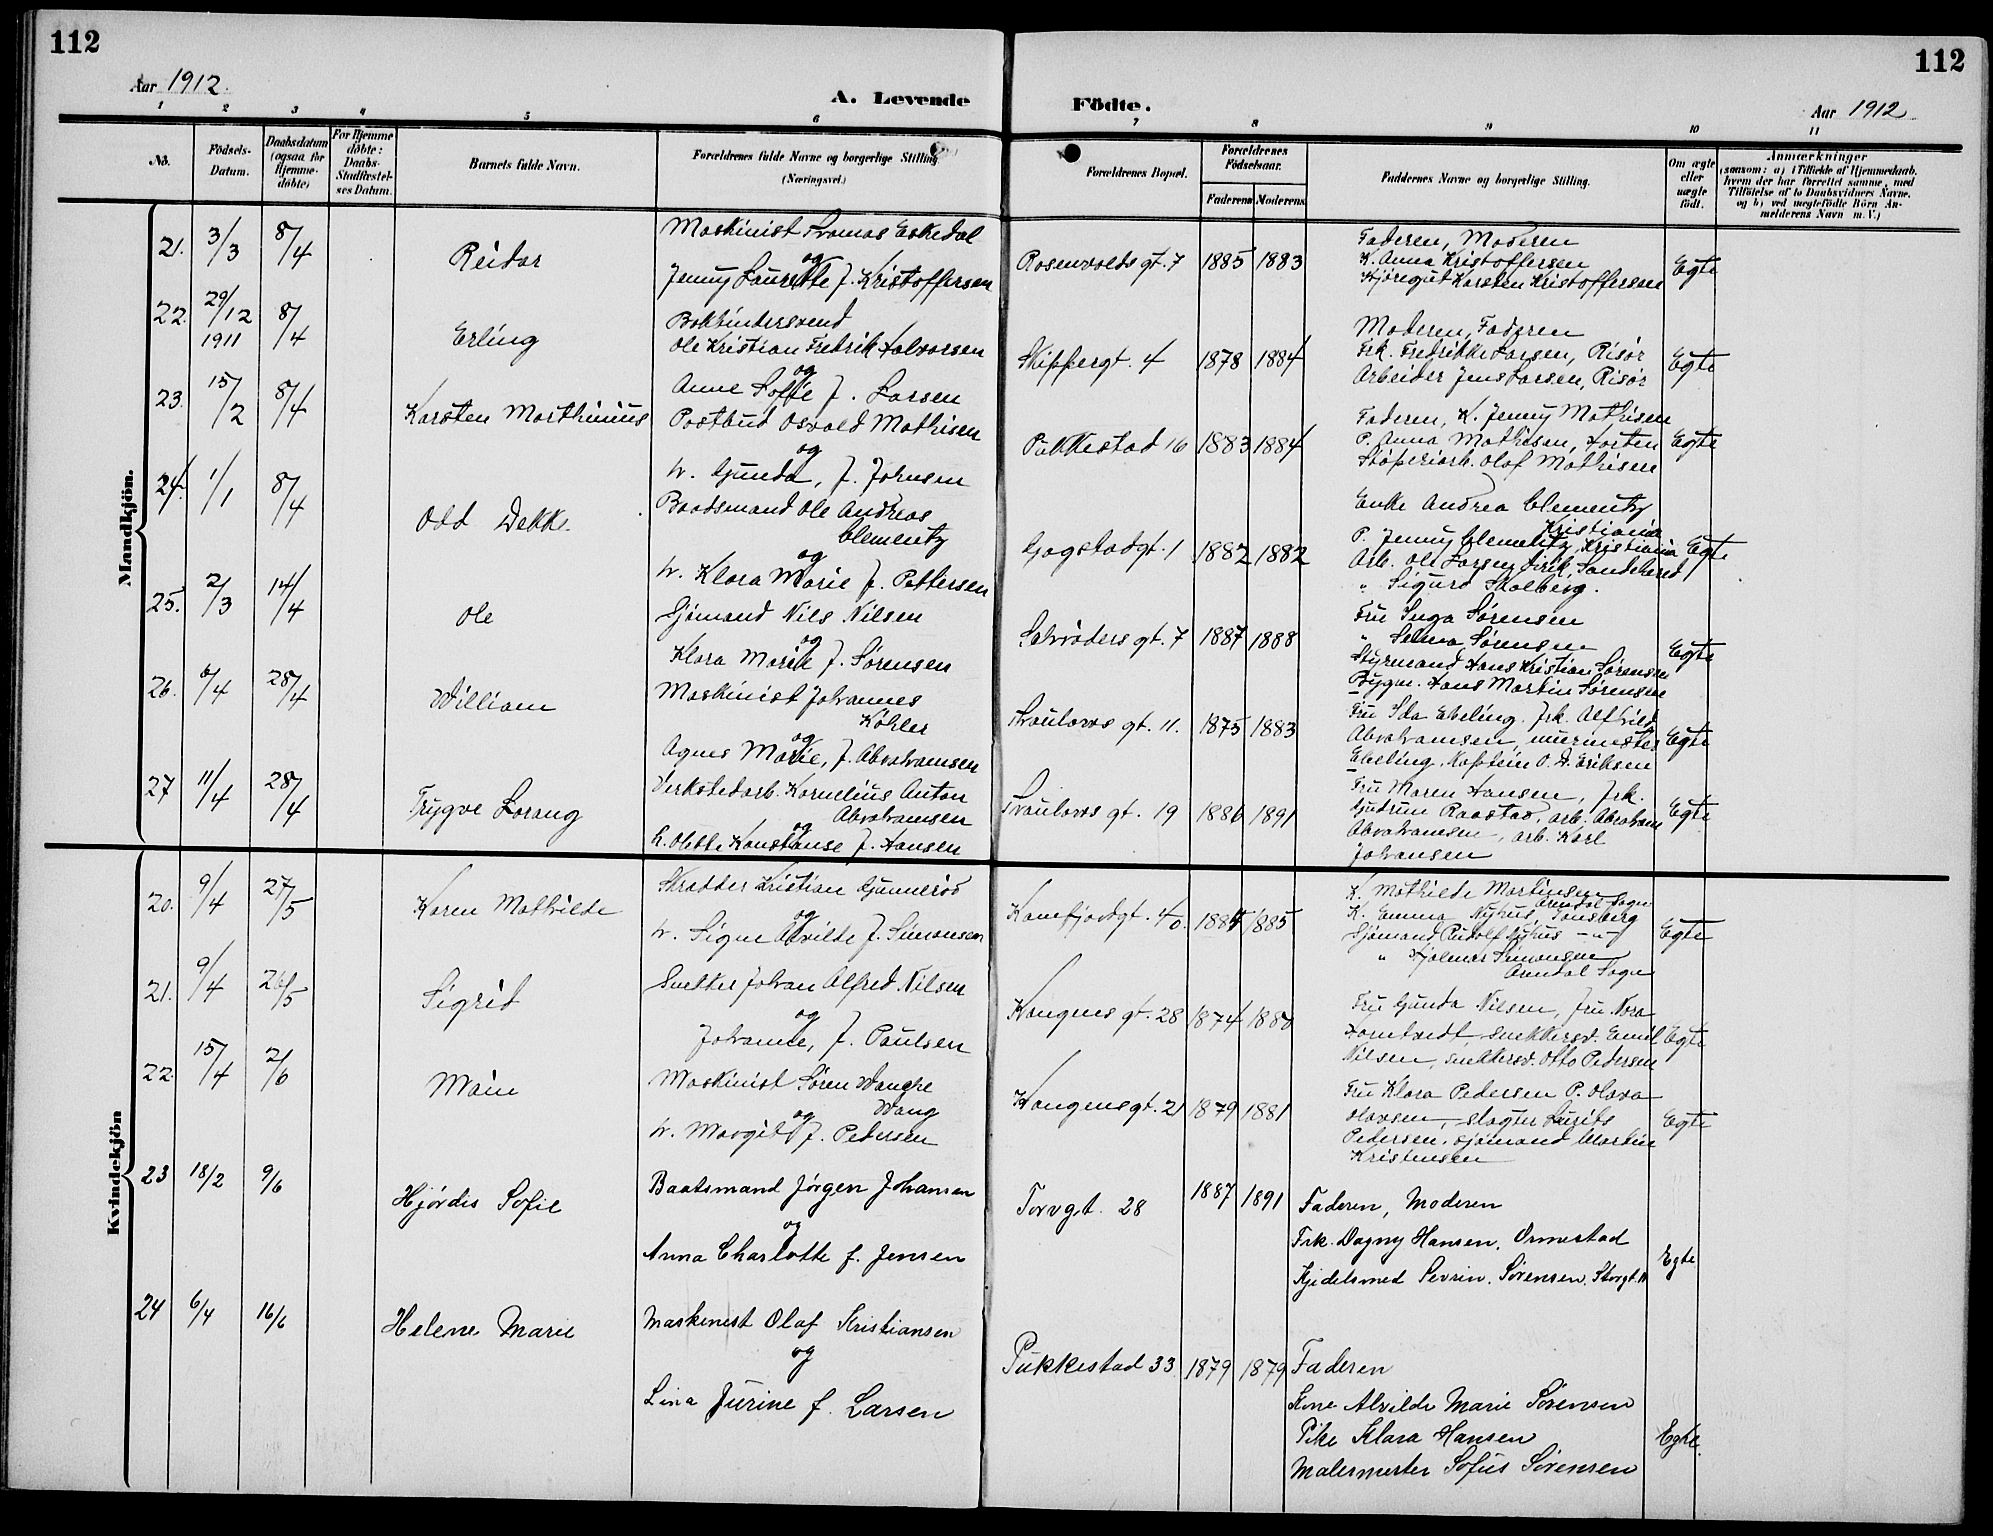 112
112
Aar 1912.
A. Levende
Födte.
Aar 1912
1 2 3 4 5 6 7 8 9 10 11
No.
Födsels-Datum.
Daabsdatum (ogsaa for Hjemme-döbte)
For Hjemme döbte: Daabs-Stadfæstel-ses Datum.
Barnets fulde Navn.
Forældrenes fulde Navne og borgerlige Stilling
(Næringsvei.)
Forældrenes Bopæl.
Forældrenes Födselsaar.
Faderens Moderens
Faddernes Navne og borgerlige Stilling.
Om ægte eller uægte födt.
Anmærkninger
(saasom: a) i Tilfælde af Hjemmedaab, hvem der har forrettet samme, med Tilföielse af to Daabsvidners Navne. og b) ved uegtefödte Börn An-melderens Navn m. V.)
Mandkjön.
21. 3/3 8/4 Reidar
Maskinist Tomas Eskedal
og
Jenny Laurette f. Kristoffersen
Rosenvolds gt. 7 1885 1883
Faderen, Moderen
K. Anna Kristoffersen
Kjøregut Karsten Kristoffersen
Egte
22. 29/12 1911 8/4 Erling
Bokbindersvend
Ole Kristian Fredrik Halvorsen
og
Anne Sofie f. Larsen
Skippergt. 4 1878 1884
Moderen, Faderen
Frk. Fredrikke Larsen, Risør
Arbeider Jens Larsen, Risør
Egte
23. 15/2 8/4 Karsten Marthinius
Postbud Osvald Mathisen
og
h. Gunda, f. Johnsen
Pukkestad 16 1883 1884
Faderen, K. Jenny Mathisen
P. Anna Mathisen, Horten
Støperiarb. Olaf Mathisen
Egte
24. 1/1 8/4 Odd Dekk.
Baadsmand Ole Andreas
Clementz
og
h. Klara Marie f. Pettersen
Gogstadgt. 1 1882 1882
Enke Andrea Clementz
Kristiania
P. Jenny Clementz, Kristiania
Arb. Ole Larsen Lirik, Sandeherred
" Sigurd Skolberg.
Egte
25. 2/3 14/4 Ole
Sjømand Nils Nilsen
og
Klara Marie f. Sørensen
Schrøders gt. 7 1887 1888
Fru Inga Sørensen
" Selma Sørensen
Styrmand Hans Kristian Sørensen
Bygm. Hans Martin Sørensen
Egte
26. 6/4 28/4 William
Maskinist Johannes
Köhler
og
Agnes Marie, f. Abrahamsen
Thaulows gt. 11. 1875 1883
Fru Ida Ebeling. Frk. Alfhild
Abrahamsen, murmester
Ebeling, Kaptein O. A. Eriksen
Egte
27 11/4 28/4 Trygve Lorang
Verkstedarb. Kornelius Anton
Abrahamsen
og
h. Hilda Konstanse f. Hansen
Thaulows gt. 19 1886 1891
Fru Maren Hansen, Frk.
Gudrun Raastad, arb. Abraham
Abrahamsen, arb. Karl
Johansen
Egte
Kvindekjön
20. 9/4 27/5 Karen Mathilde
Skrædder Kristian Gunnerød
og
h. Signe Alvilde f. Simonsen
Kamfjordgt. 40. 1884 1885
K. Mathilde Martinsen
Arendal Sogn
K. Emma Nyhus, Tønsberg
Sjømand Rudolf Nyhus - " -
" Hjalmar Simonsen
Arendal Sogn
Egte
21. 9/4 26/5 Sigrid
Snekker Johan Alfred Nilsen
og
Johanne, f. Paulsen
Kongens gt. 28 1874 1880
Fru Gunda Nilsen, Fru Nora
Homtvedt, snekkersv. Emil
Nilsen, snekkersv. Otto Pedersen
Egte
22. 15/4 2/6 Maie
Maskinist Søren Wanghe
Wang
og
h. Margit f. Pedersen
Kongensgt. 21 1879 1881
Fru Klara Pedersen P. Olava
Olavsen, slagter Laurits
Pedersen, sjømand Martin
Kristensen
Egte
23 18/2 9/6 Hjördis Sofie
Baatsmand Jørgen Johansen
og
Anna Charlotte f. Jensen
Torvgt. 28 1887 1891
Faderen, Moderen
Frk. Dagny Hansen, Ormestad
Kjedelsmed Sevrin. Sörensen. Storgt. 11
Egte
24 6/4 16/6 Helene Marie
Maskinist Olaf Kristiansen
og
Lina Jurine f. Larsen
Pukkestad 33 1879 1879
Faderen
Kone Alvilde Marie Sörensen
Pike Klara Hansen
Malermester Sofus Sörensen
Egte.